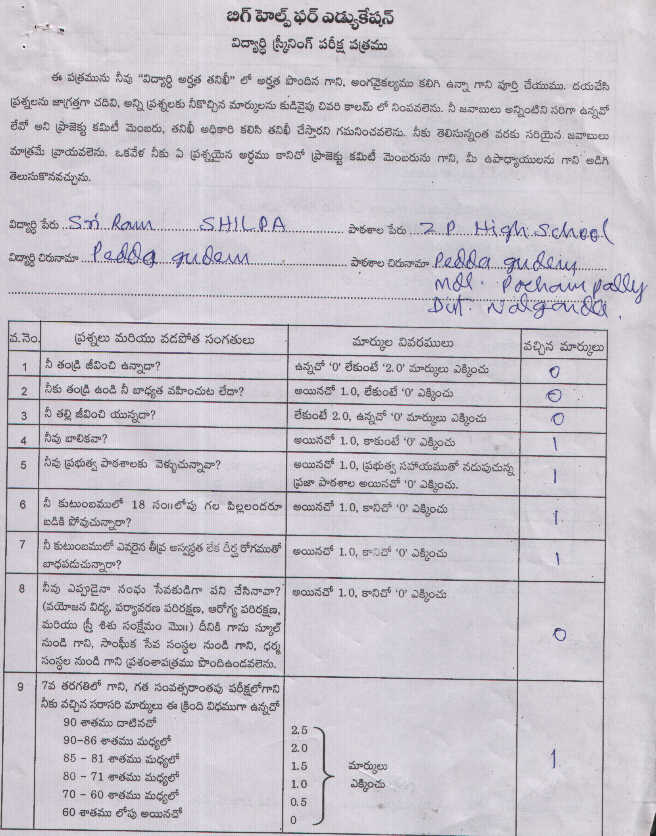 బిగ్ హెల్ప్ ఫర్ ఎడ్యుకేషన్
విద్యార్థి స్క్రీనింగ్ పరీక్ష పత్రము
ఈ పత్రమును నీవు "విద్యార్థి అర్హత తనిఖీ" లో అర్హత పొందిన గాని, అంగవైకల్యము కలిగి ఉన్నా గాని పూర్తి చేయుము. దయచేసి
ప్రశ్నలను జాగ్రత్తగా చదివి, అన్ని ప్రశ్నలకు నీకొచ్చిన మార్కులను కుడివైపు చివరి కాలమ్ లో నింపవలెను. నీ జవాబులు అన్నింటిని సరిగా ఉన్నవో
లేవో అని ప్రాజెక్టు కమిటీ మెంబరు, తనిఖీ అధికారి కలిసి తనిఖీ చేస్తారని గమనించవలెను. నీకు తెలిసున్నంత వరకు సరియైన జవాబులు
మాత్రమే వ్రాయవలెను. ఒకవేళ నీకు ఏ ప్రశ్నయైన అర్థము కానిచో ప్రాజెక్టు కమిటీ మెంబరును గాని, మీ ఉపాధ్యాయులను గాని అడిగి
తెలుసుకొనవచ్చును.
విద్యార్థి పేరు Sri Ram SHILPA పాఠశాల పేరు Z P High School
విద్యార్థి చిరునామా Pedda gudem పాఠశాల చిరునామా Pedda gudem
Mdl. Pochampally
Dist. Nalgonda.
వ.నెం. ప్రశ్నలు మరియు వడపోత సంగతులు మార్కుల వివరములు వచ్చిన మార్కులు
1 నీ తండ్రి జీవించి ఉన్నాడా? ఉన్నచో '0' లేకుంటే '2.0' మార్కులు ఎక్కించు 0
2 నీకు తండ్రి ఉండి నీ బాధ్యత వహించుట లేదా? అయినచో 1.0, లేకుంటే '0' ఎక్కించు 0
3 నీ తల్లి జీవించి యున్నదా? లేకుంటే 2.0, ఉన్నచో '0' మార్కులు ఎక్కించు 0
4 నీవు బాలికవా? అయినచో 1.0, కాకుంటే '0' ఎక్కించు 1
5 నీవు ప్రభుత్వ పాఠశాలకు వెళ్ళుచున్నావా? అయినచో 1.0, ప్రభుత్వ సహాయముతో నడుపుచున్న
ప్రజా పాఠశాల అయినచో '0' ఎక్కించు. 1
6 నీ కుటుంబములో 18 సం॥లోపు గల పిల్లలందరూ అయినచో 1.0, కానిచో '0' ఎక్కించు
బడికి పోవుచున్నారా? 1
7 నీ కుటుంబములో ఎవరైన తీవ్ర అస్వస్థత లేక దీర్ఘ రోగముతో అయినచో 1.0, కానిచో '0' ఎక్కించు 1
బాధపడుచున్నారా?
8 నీవు ఎప్పుడైనా సంఘ సేవకుడిగా పని చేసినావా? అయినచో 1.0, కానిచో '0' ఎక్కించు
(వయోజన విద్య, పర్యావరణ పరిరక్షణ, ఆరోగ్య పరిరక్షణ,
మరియు స్త్రీ శిశు సంక్షేమం మొ॥) దీనికి గాను స్కూల్
నుండి గాని, సాంఘీక సేవ సంస్థల నుండి గాని, ధర్మ 0
సంస్థల నుండి గాని ప్రశంశాపత్రము పొందిఉండవలెను.
9 7వ తరగతిలో గాని, గత సంవత్సరాంతపు పరీక్షలోగాని
నీకు వచ్చిన సరాసరి మార్కులు ఈ క్రింది విధముగా ఉన్నచో
90 శాతము దాటినచో 2.5
90-86 శాతము మధ్యలో 2.0
85 - 81 శాతము మధ్యలో 1.5 మార్కులు 1
80 - 71 శాతము మధ్యలో 1.0 ఎక్కించు
70 - 60 శాతము మధ్యలో 0.5
60 శాతము లోపు అయినచో 0